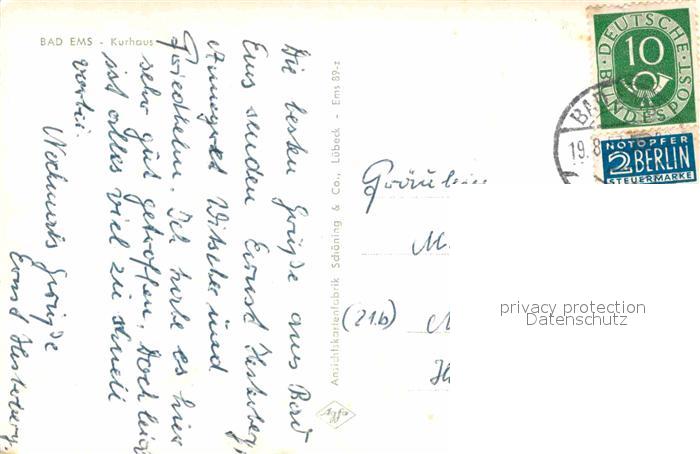 BAD EMS - Kurhaus
Die besten Grüße aus Bad
Ems senden Ernst
Annegret und
Friedhelm. Ich habe es hier
sehr gut getroffen. Doch leider
ist alles viel zu schnell
vorbei.
Nochmals Grüße
Ernst
Ansichtskartenfabrik Schöning & Co., Lübeck - Ems 89-z
Agfa
DEUTSCHE BUNDESPOST
10
BAD
19.8.
NOTOPFER
2 BERLIN
STEUERMARKE
Fräulein
M.
(21b)
privacy protection
Datenschutz